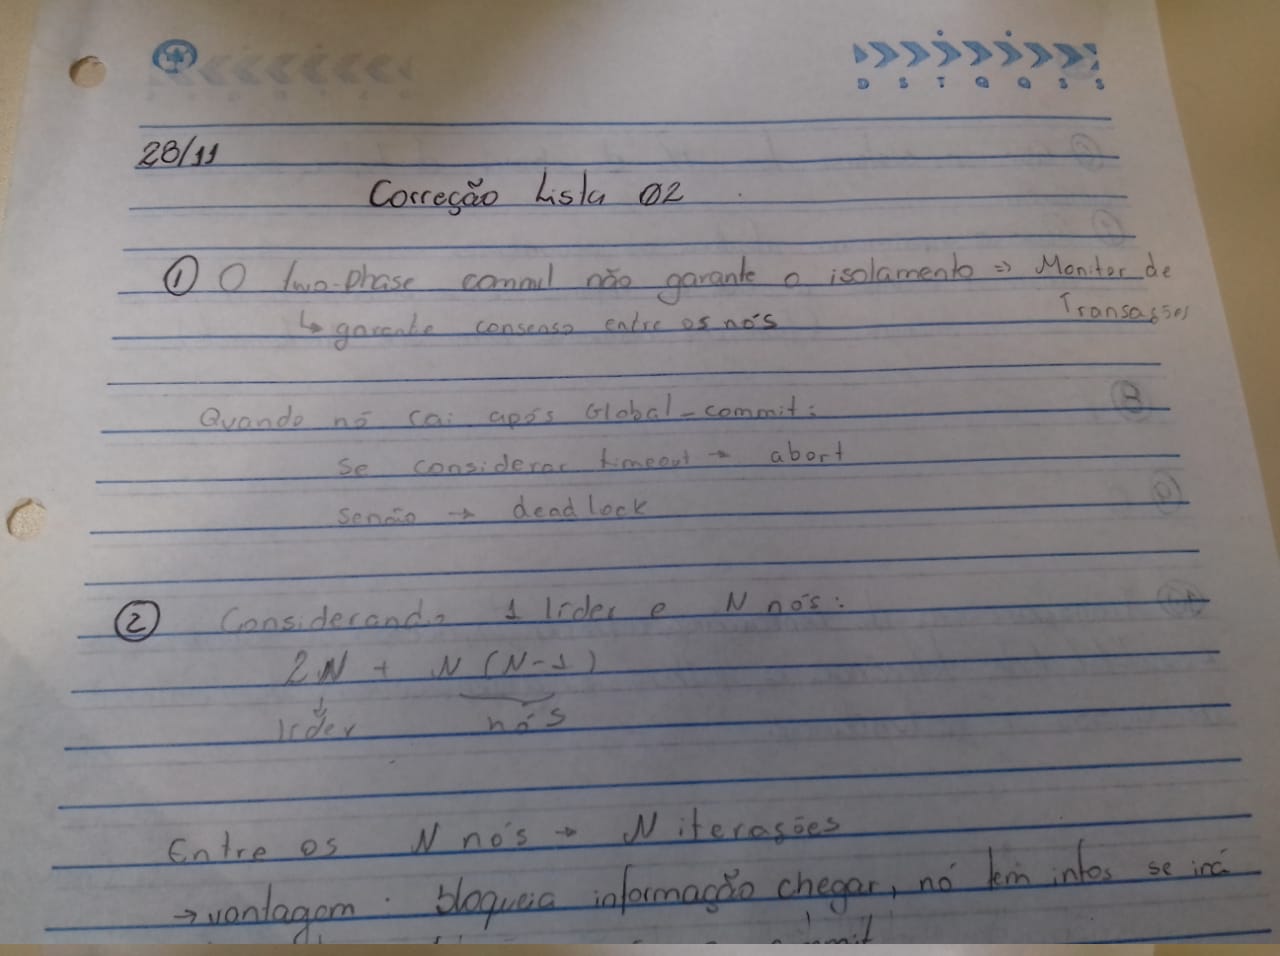 D S T Q Q S S
28/11
Correção Lista 02
① O two-phase commit não garante o isolamento => Monitor de Transações
↳ garante consenso entre os nós
Quando nó cai após Global-commit:
se considerar timeout → abort
senão → deadlock
② Considerando 1 líder e N nós:
2N + N (N-1)
↓
líder nós
Entre os N nós → N iterações
→ vantagem: bloqueia informação chegar, nó tem infos se irá